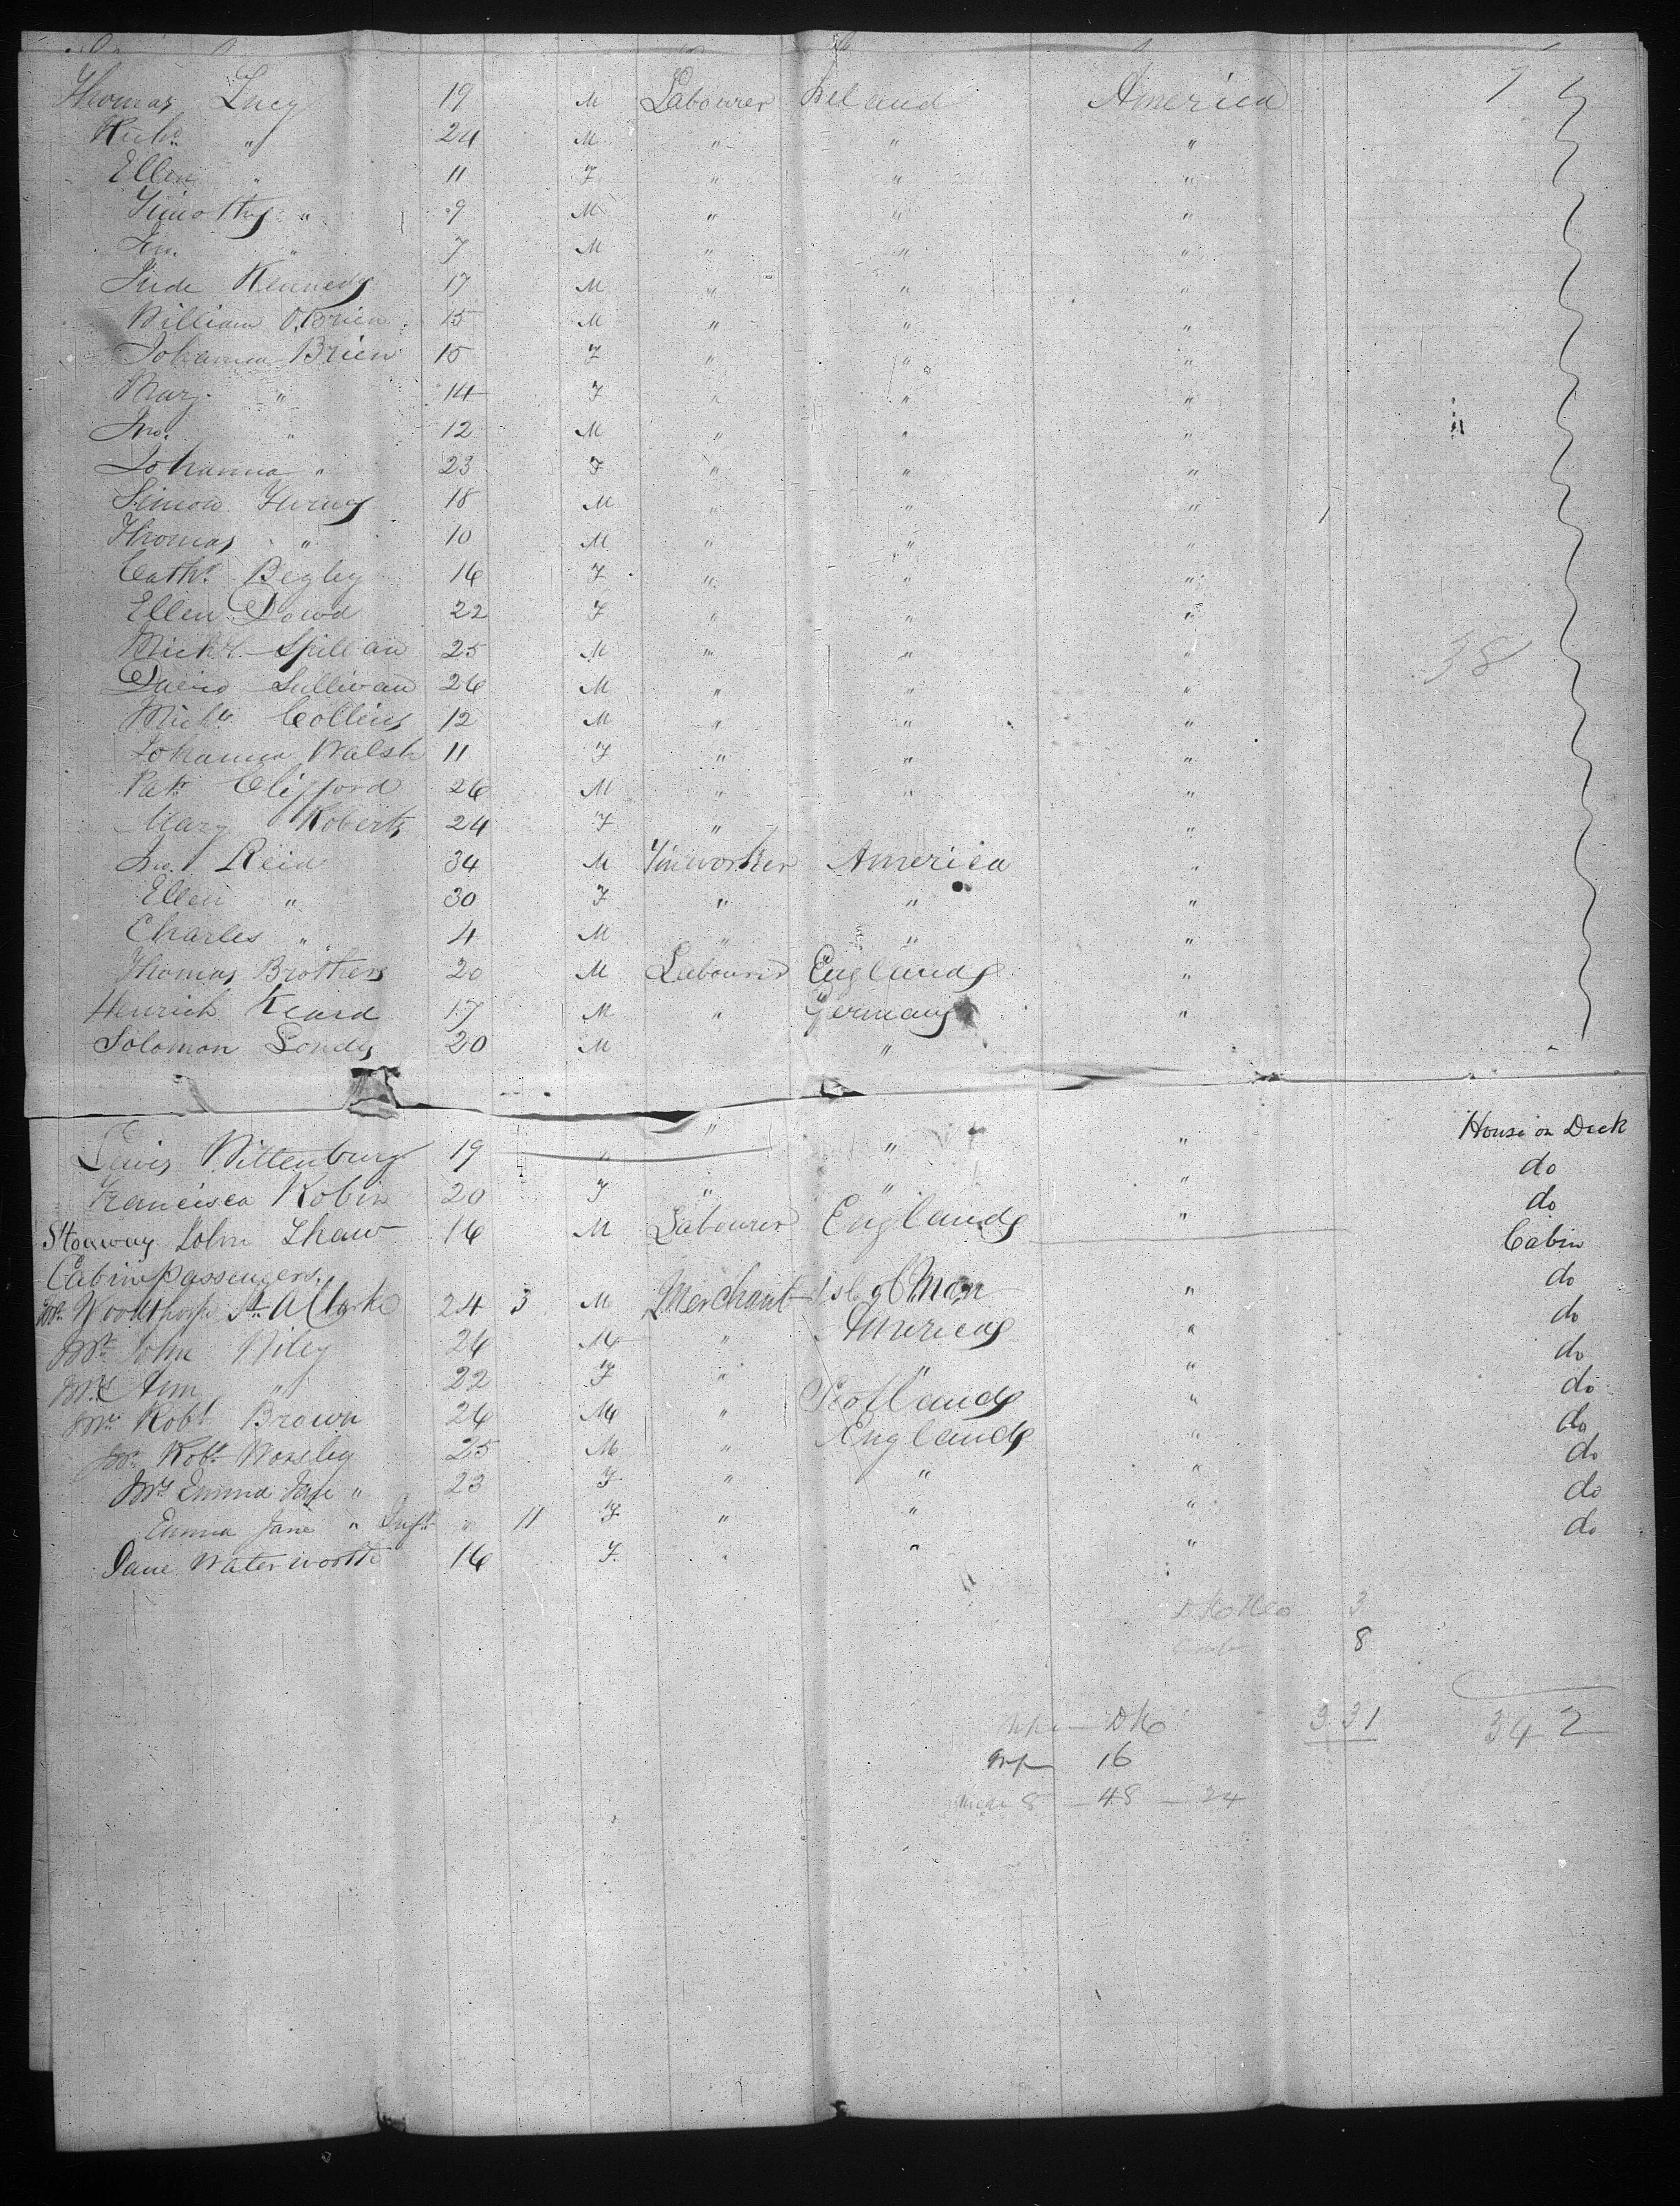 Thomas Lucy 19 M Labourer Ireland America
" 24 M " " "
Ellen " 11 F " " "
Timothy " 9 M " " "
Jno. " 7 M " " "
Jude Kennedy 17 M " " "
William O'Brien 15 M " " "
Johanna Brien 15 F " " "
Mary " 14 F " " "
Jno. " 12 M " " "
Johanna " 23 F " " "
Simon 18 M " " "
Thomas " 10 M " " "
Cathr. Begley 16 F " " "
Ellen Dowd 22 F " " "
Michl. Spillan 25 M " " " 38
David Sullivan 26 M " " "
Michl. Collins 12 M " " "
Johanna Walsh 11 F " " "
Patk Clifford 26 M " " "
Mary Roberts 24 F " "
Jno. Reid 34 M Tinworker America "
Ellen " 30 F " " "
Charles " 4 M " " "
Thomas Brothers 20 M Labourer England "
Henrich Keard 17 M " Germany "
Solomon Londy 20 M "
Lewis Wittenburg 19 " " " House on Deck
Francisca Robin 20 F " " " do
Stoaway John Shaw 16 M Labourer England " do
Cabin Passengers. Cabin
Mr. Woodthorpe St. A Clarke 24 3 M Merchant Isle of Man " do
Mr. John Wiley 26 M " America " do
Mrs Ann " 22 F " " " do
Mr. Robt Brown 26 M " Scotland " do
Mr. Robt. Worsley 25 M " England " do
Mrs Emma Jane " 23 F " " " do
Emma Jane " Inft " 11 F " " " do
Jane Waterworth 16 F. " " " do
3
8
331 342
16
8 - 48 - 24